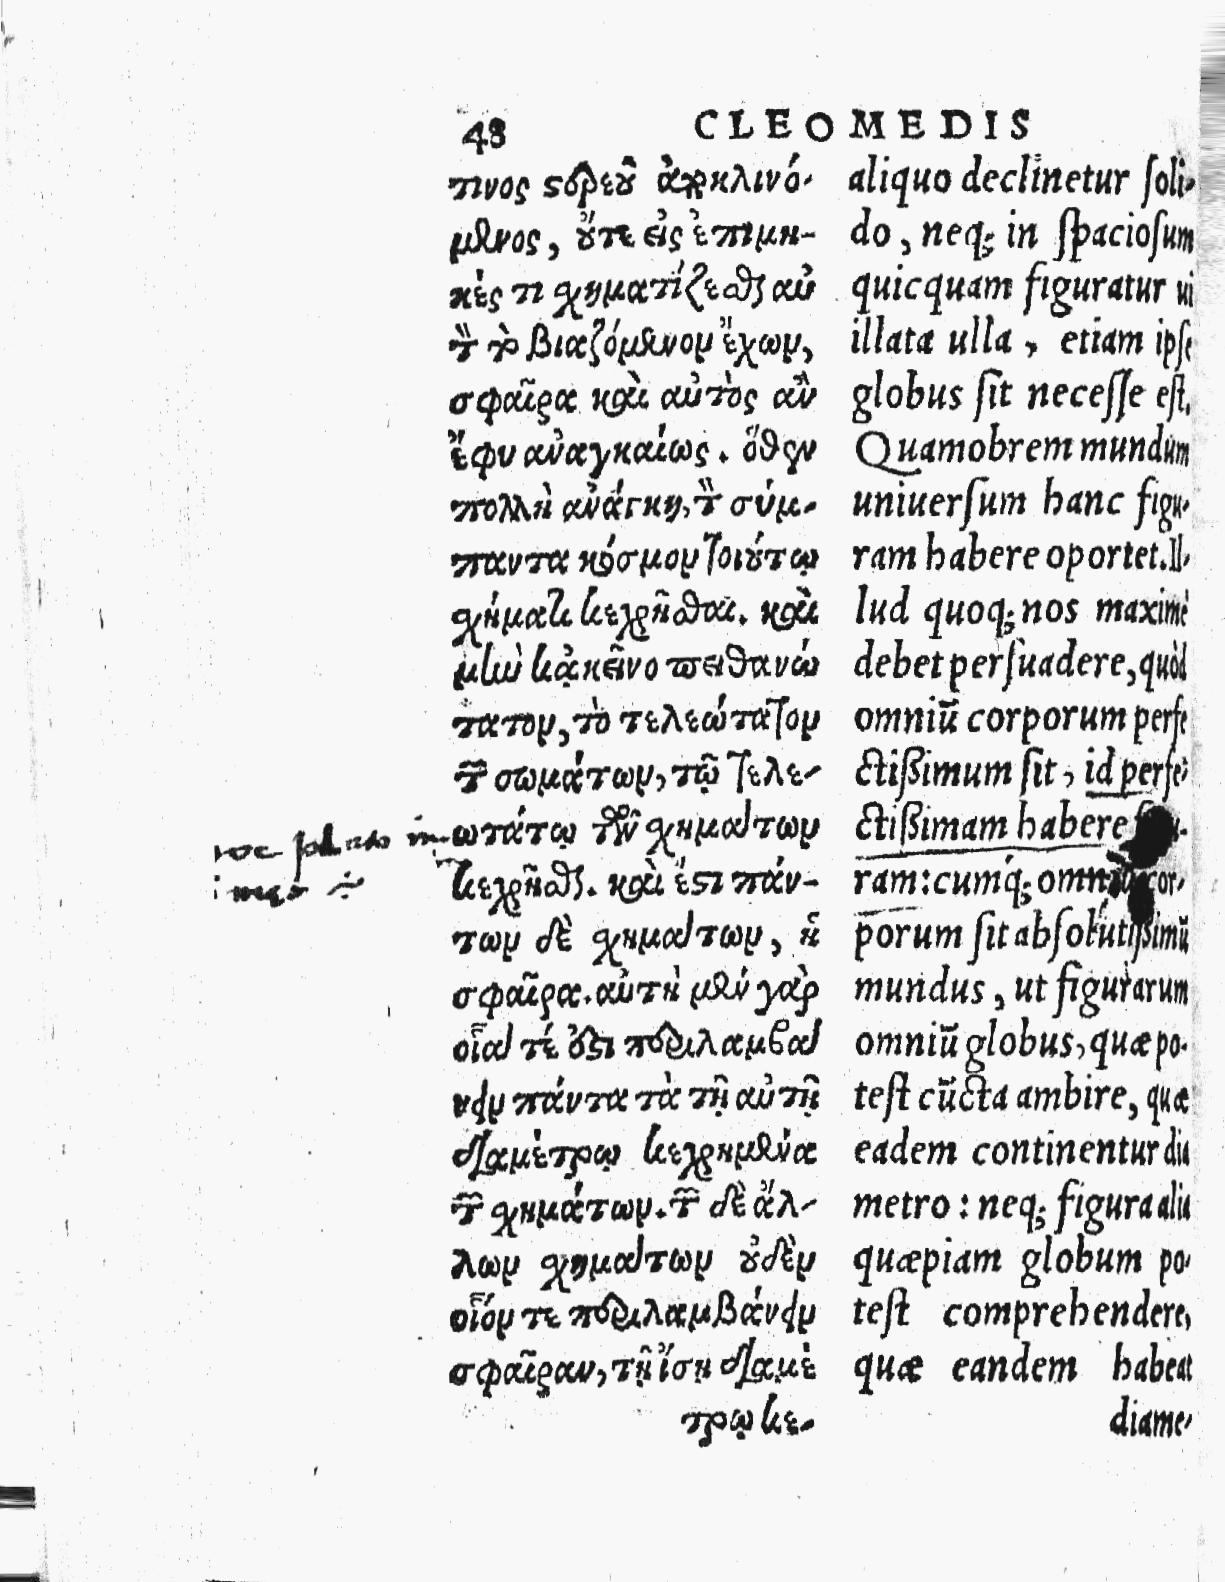 48 CLEOMEDIS
τινος στερεοῦ ἀποκλινό-
μενος, οὔτε εἰς ἐπιμή-
κές τι σχηματίζεσθαι αὐ
τὸν τὸν βιαζόμενον ἔχων,
σφαῖρα καὶ αὐτὸς ἂν
ἔφυ ἀναγκαίως. ὅθεν
πολλὴ ἀνάγκη, τὸν σύμ-
παντα κόσμον τοιούτῳ
σχήματι κεχρῆσθαι. καὶ
μὴν κἀκεῖνο πειθανώ
τατον, τὸ τελεώτατον
τῶν σωμάτων, τῷ τελε-
ωτάτῳ τῶν σχημάτων
κεχρῆσθαι. καὶ ἔστι πάν-
των δὲ σχημάτων, ἡ
σφαῖρα. αὐτὴ μὲν γὰρ
οἵα τέ ἐστι περιλαμβά
νειν πάντα τὰ τῇ αὐτῇ
διαμέτρῳ κεχρημένα
τῶν σχημάτων. τῶν δὲ ἄλ-
λων σχημάτων οὐδὲν
οἷόν τε περιλαμβάνειν
σφαῖραν, τῇ ἴσῃ διαμέ
τρῳ κε-
aliquo declinetur ſoli-
do, neq; in ſpacioſum
quicquam figuratur ui
illata ulla, etiam ipſe
globus ſit neceſſe eſt.
Quamobrem mundum
uniuerſum hanc figu-
ram habere oportet. Il-
lud quoq; nos maximè
debet perſuadere, quòd
omniũ corporum perfe
ctißimum ſit, id perfe-
ctißimam habere
ram: cumq́; omniũ cor-
porum ſit abſolutißimũ
mundus, ut figurarum
omniũ globus, quæ po-
teſt cũcta ambire, quæ
eadem continentur dia
metro: neq; figura alia
quæpiam globum po-
teſt comprehendere,
quæ eandem habeat
diame-